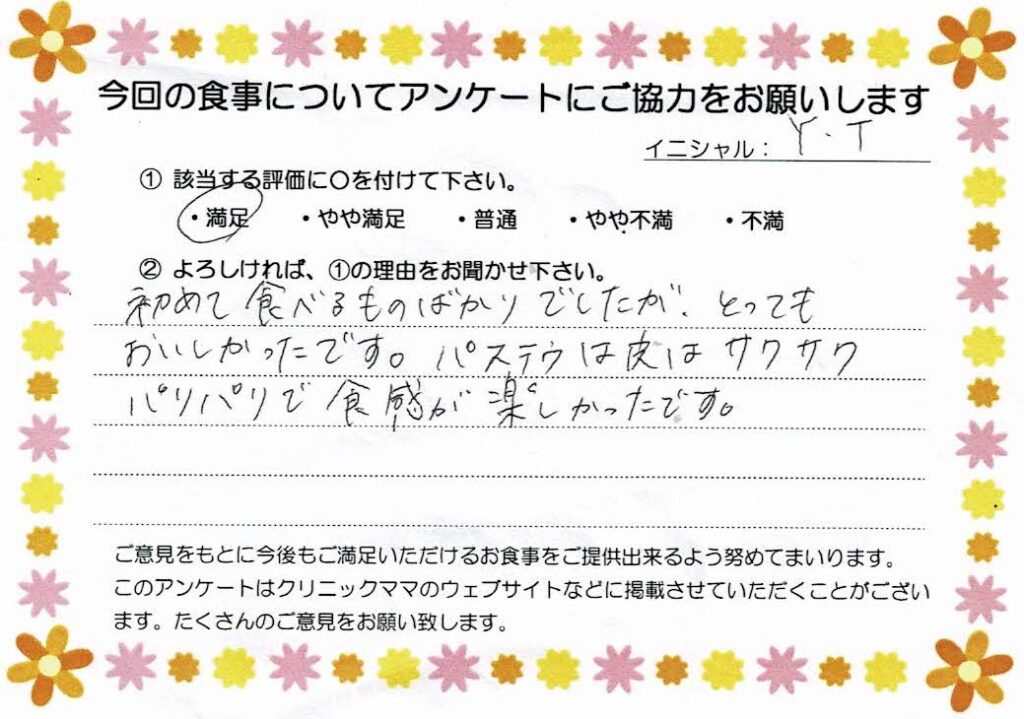 今回の食事についてアンケートにご協力をお願いします
イニシャル： Y.T
① 該当する評価に〇を付けて下さい。
・満足 ・やや満足 ・普通 ・やや不満 ・不満
② よろしければ、①の理由をお聞かせ下さい。
初めて食べるものばかりでしたが、とっても
おいしかったです。パステウは皮はサクサク
パリパリで食感が楽しかったです。
ご意見をもとに今後もご満足いただけるお食事をご提供出来るよう努めてまいります。
このアンケートはクリニックママのウェブサイトなどに掲載させていただくことがござい
ます。たくさんのご意見をお願い致します。